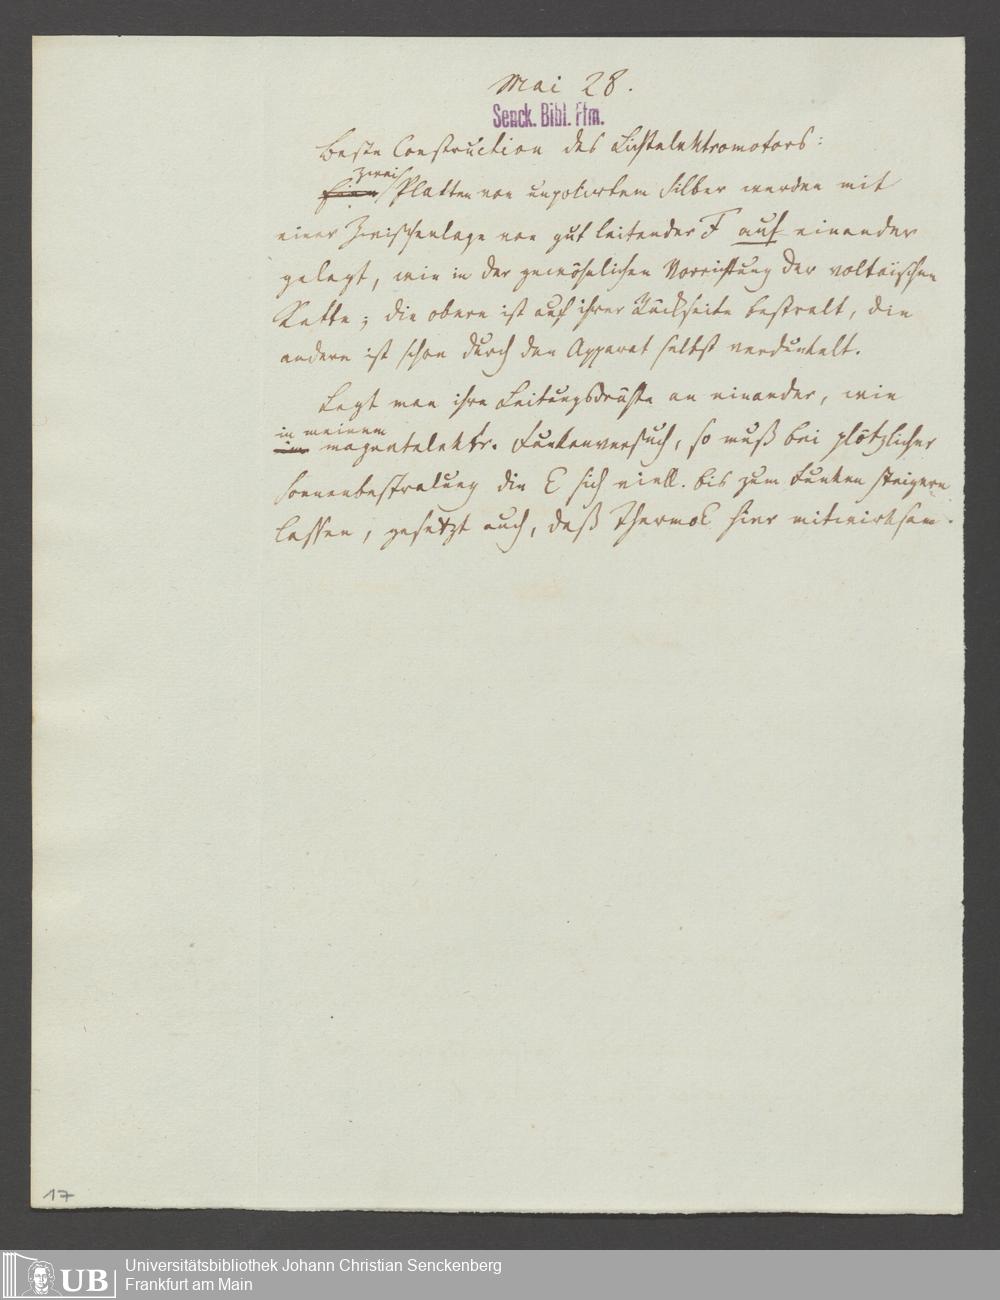 Mai 28.
Senck. Bibl. Ffm.
Beste Construction des Lichtelektromotors:
zwei
Platten von unpolirtem Silber werden mit
einer Zwischenlage von gut leitender F auf einander
gelegt, wie in der gewöhnlichen Vorrichtung der voltaischen
Kette; die obere ist auf ihrer Rückseite bestralt, die
andere ist schon durch den Apparat selbst verdunkelt.
Legt man ihre Leitungsdräthe an einander, wie
in meinem
magnetelektr. Funkenversuch, so muß bei plötzlicher
Sonnenbestralung die E sich viell. bis zum Funken steigern
lassen, gesetzt auch, daß ThermoE hier mitwirksam.
17
UB
Universitätsbibliothek Johann Christian Senckenberg
Frankfurt am Main